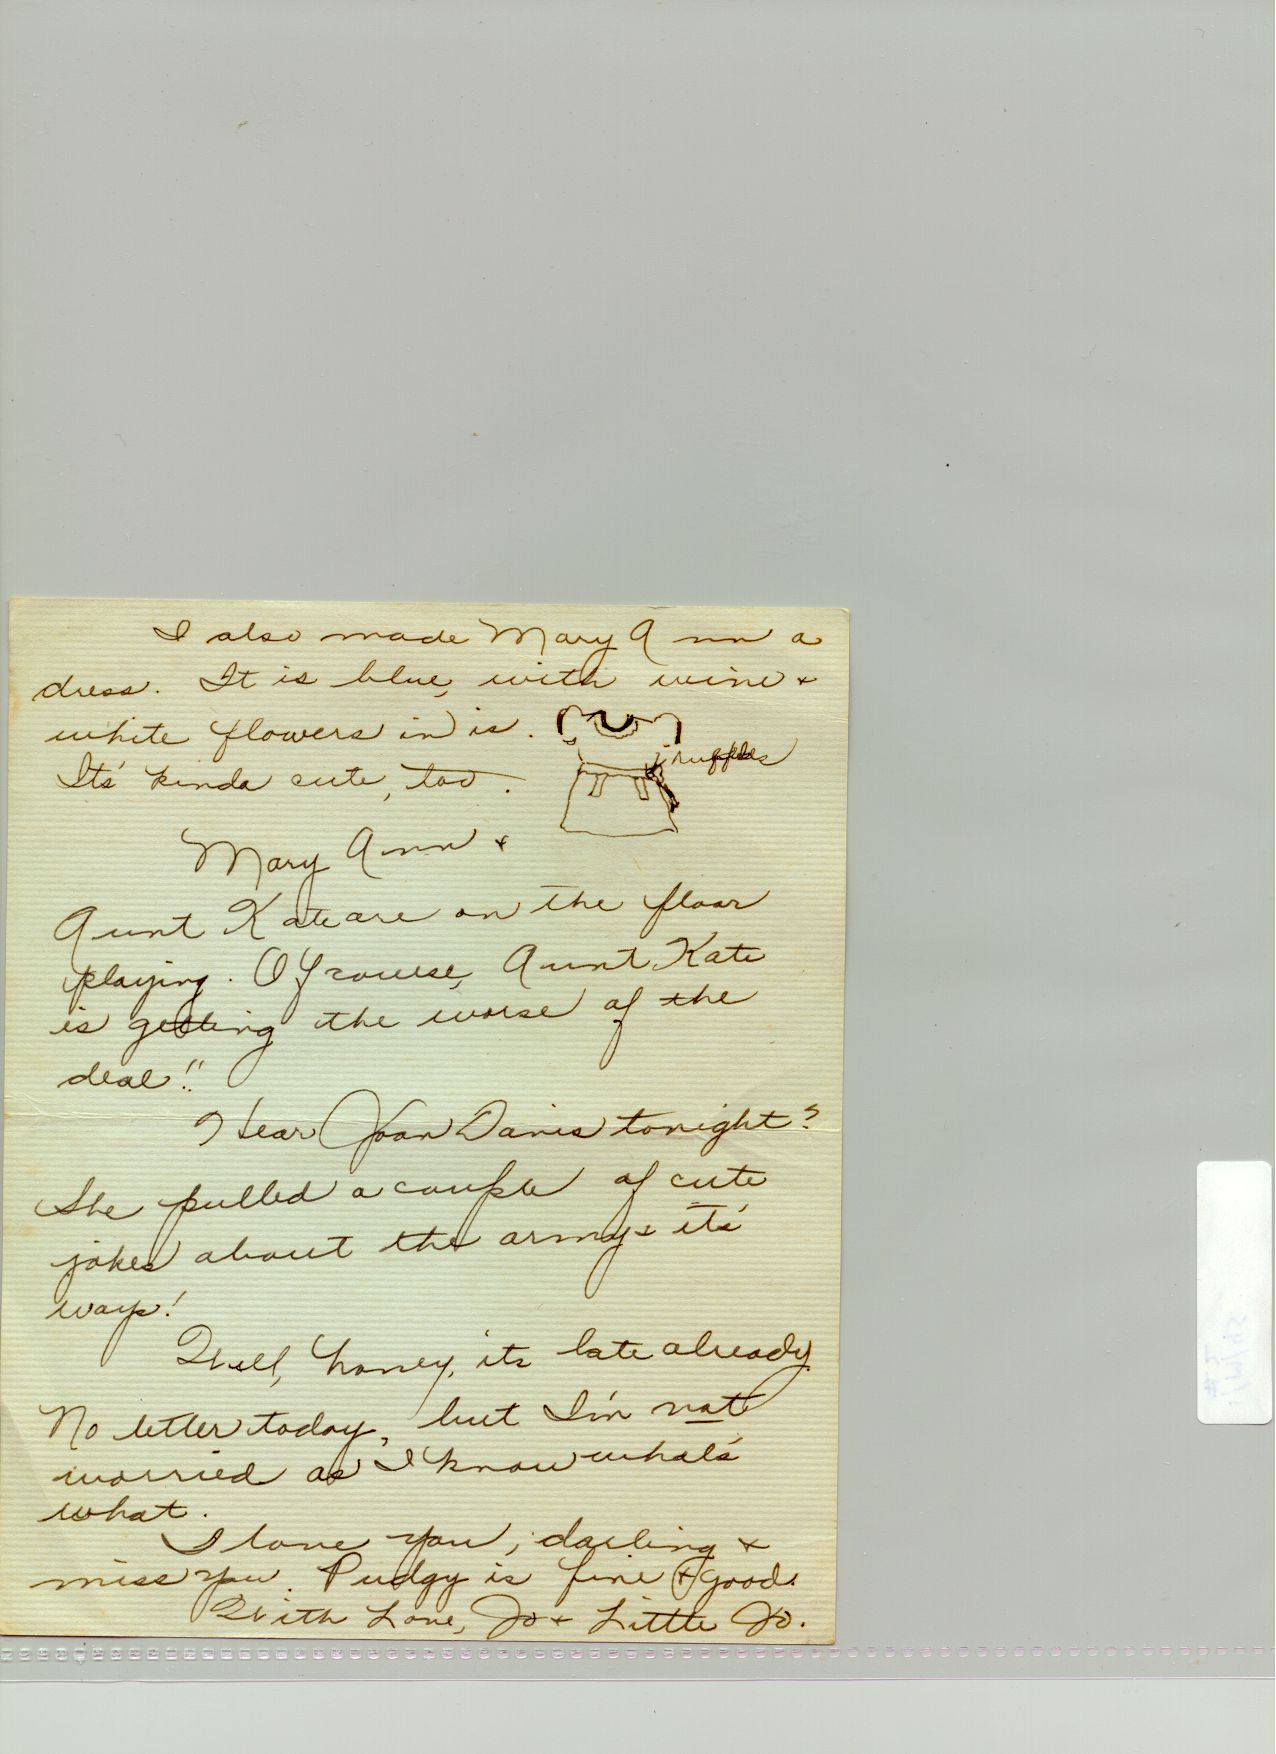 I also made Mary Ann a
dress. It is blue, with wine +
white flowers in is.
Its' kinda cute, too.
ruffles
Mary Ann +
Aunt Kate are on the floor
playing. Of course, Aunt Kate
is getting the worse of the
deal!!
Hear Joan Davis tonight?
She pulled a couple of cute
jokes about the army + its'
ways!
Well, honey, its late already.
No letter today, but I'm not
worried as I know whats'
what.
I love you, darling +
miss you. Pudgy is fine + good.
With Love, Jo + Little Jo.